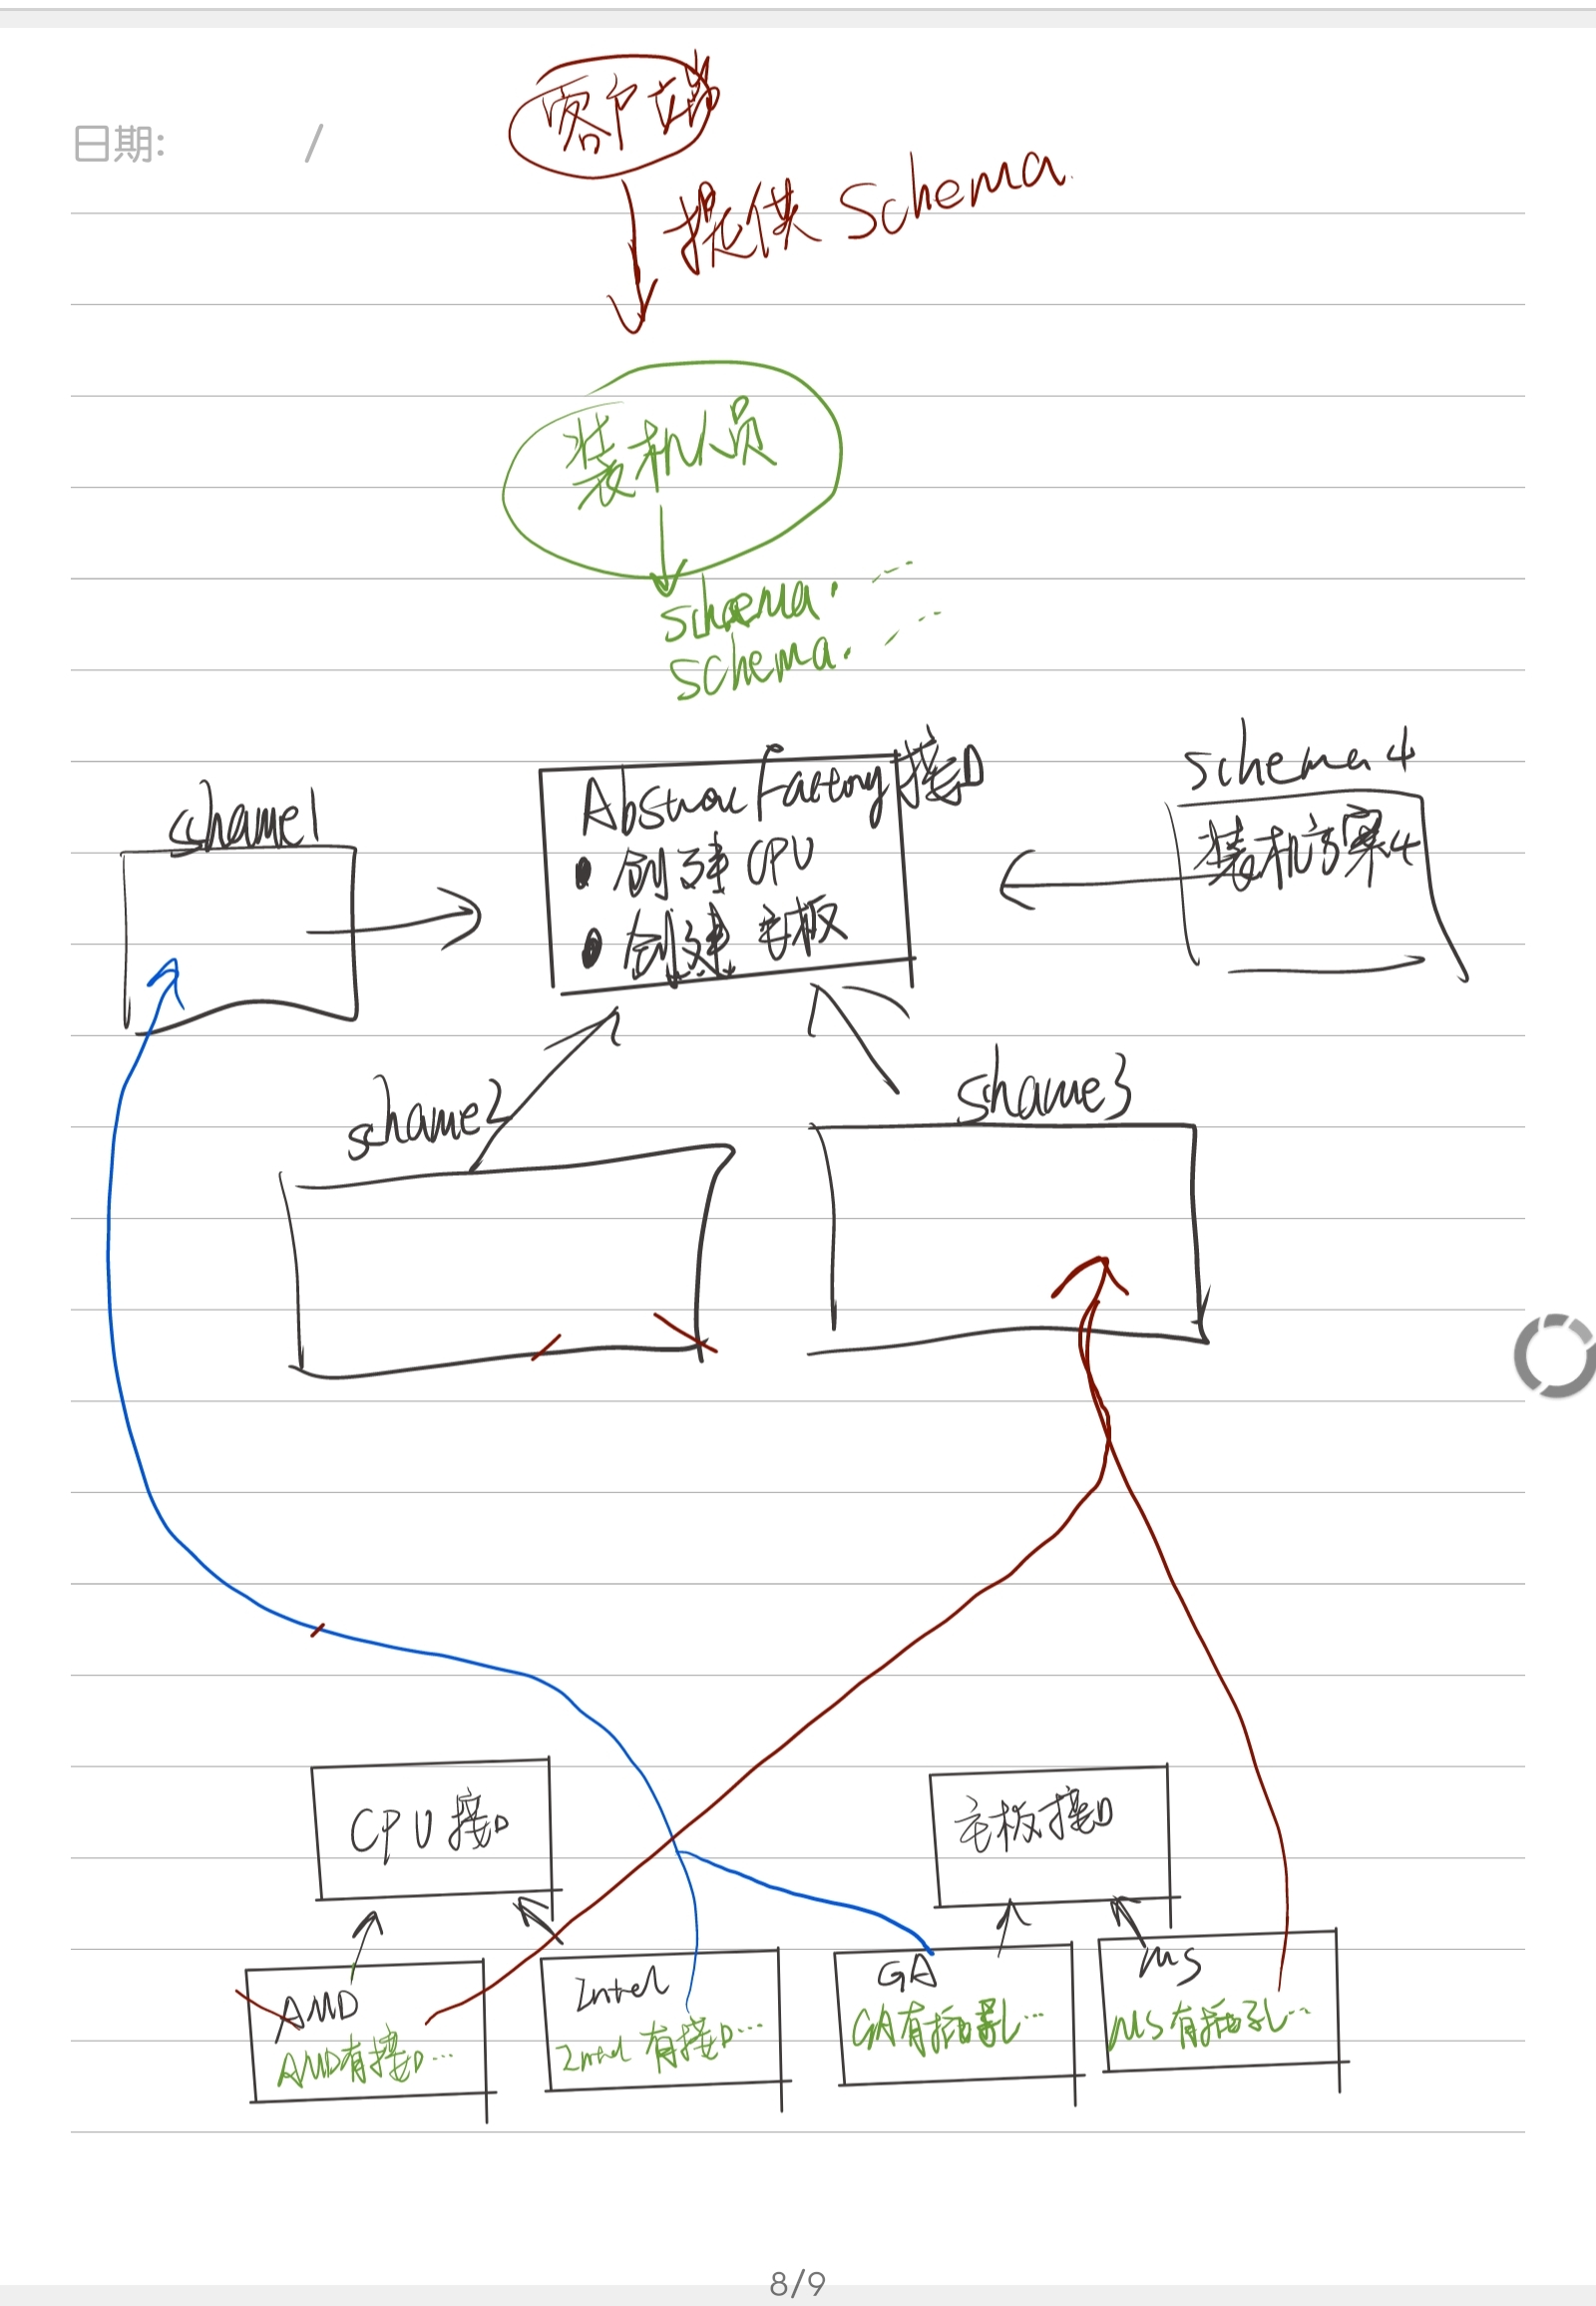 客户端
日期: /
提供 Schema.
装机人员
schema. ...
schema. ...
schame1
Abstrac Factory接口
• 创建 CPU
• 创建 主板
schema 4
装机方案4
schame2
schame3
CPU 接口
主板接口
AMD
AMD有接口...
Intel
Intel 有接口...
GA
GA有插孔...
MS
MS 有插孔...
8/9